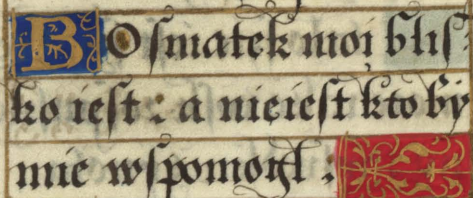 BO smatek moi blis
ko iest : a nieiest kto by
mie wspomogl :